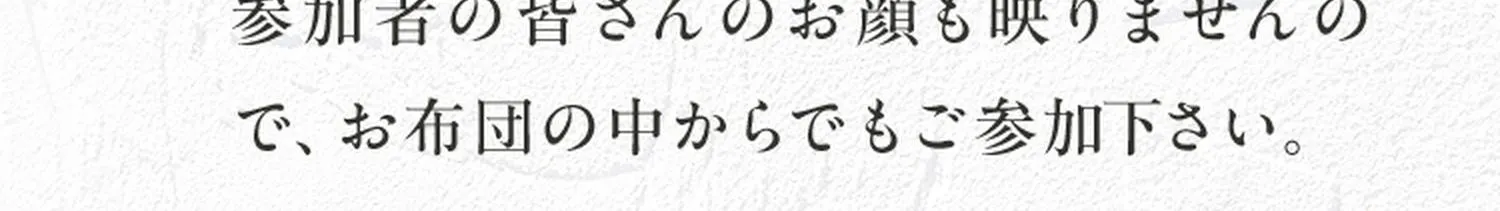 参加者の皆さんのお顔も映りませんの
で、お布団の中からでもご参加下さい。